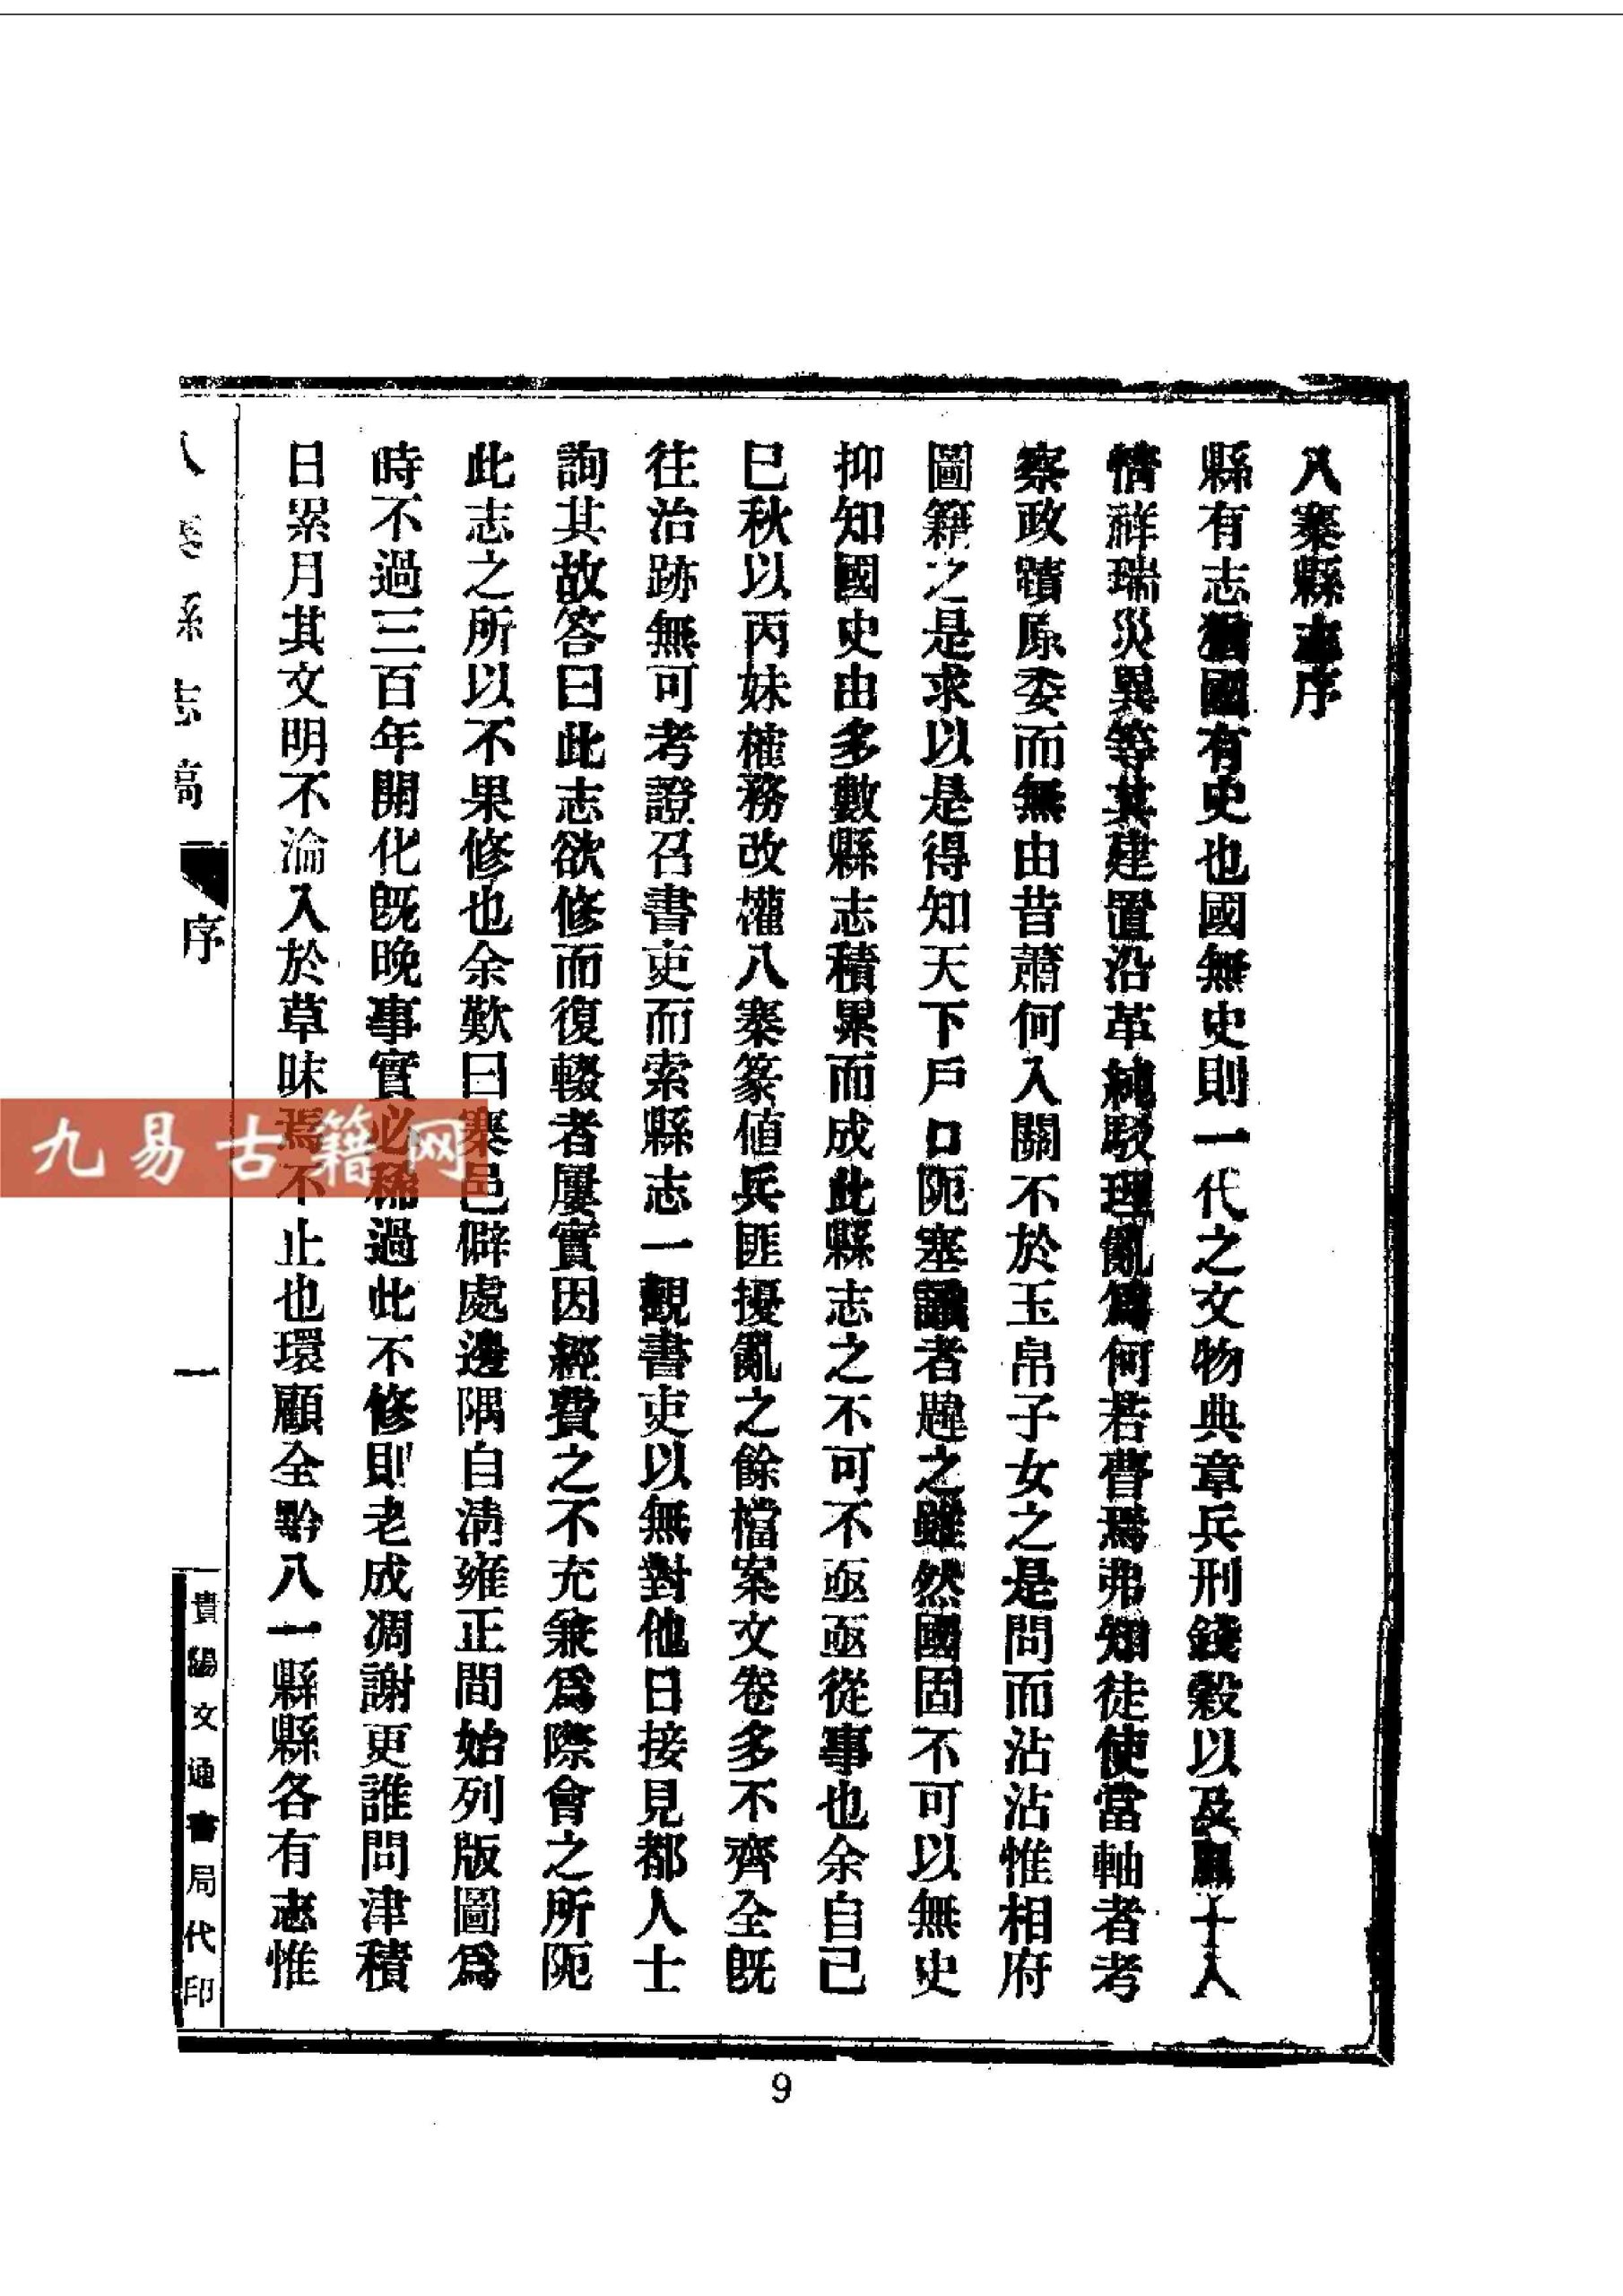 八寨縣志序
縣有志猶國有史也國無史則一代之文物典章兵刑錢穀以及風土人
情祥瑞災異等其建置沿革純駁理亂爲何若曹焉弗知徒使當軸者考
察政蹟原委而無由昔蕭何入關不於玉帛子女之是問而沾沾惟相府
圖籍之是求以是得知天下戶口阨塞識者韙之雖然國固不可以無史
抑知國史由多數縣志積累而成此縣志之不可不亟亟從事也余自己
巳秋以丙妹權務改權八寨篆値兵匪擾亂之餘檔案文卷多不齊全旣
往治跡無可考證召書吏而索縣志一觀書吏以無對他日接見都人士
詢其故答曰此志欲修而復輟者屢實因經費之不充兼爲際會之所阨
此志之所以不果修也余歎曰寨邑僻處邊隅自清雍正間始列版圖爲
時不過三百年開化旣晚事實必稀過此不修則老成凋謝更誰問津積
日累月其文明不淪入於草昧焉不止也環顧全黔八一縣縣各有志惟
八寨縣志稿 序 一 貴陽文通書局代印
九易古籍网
9